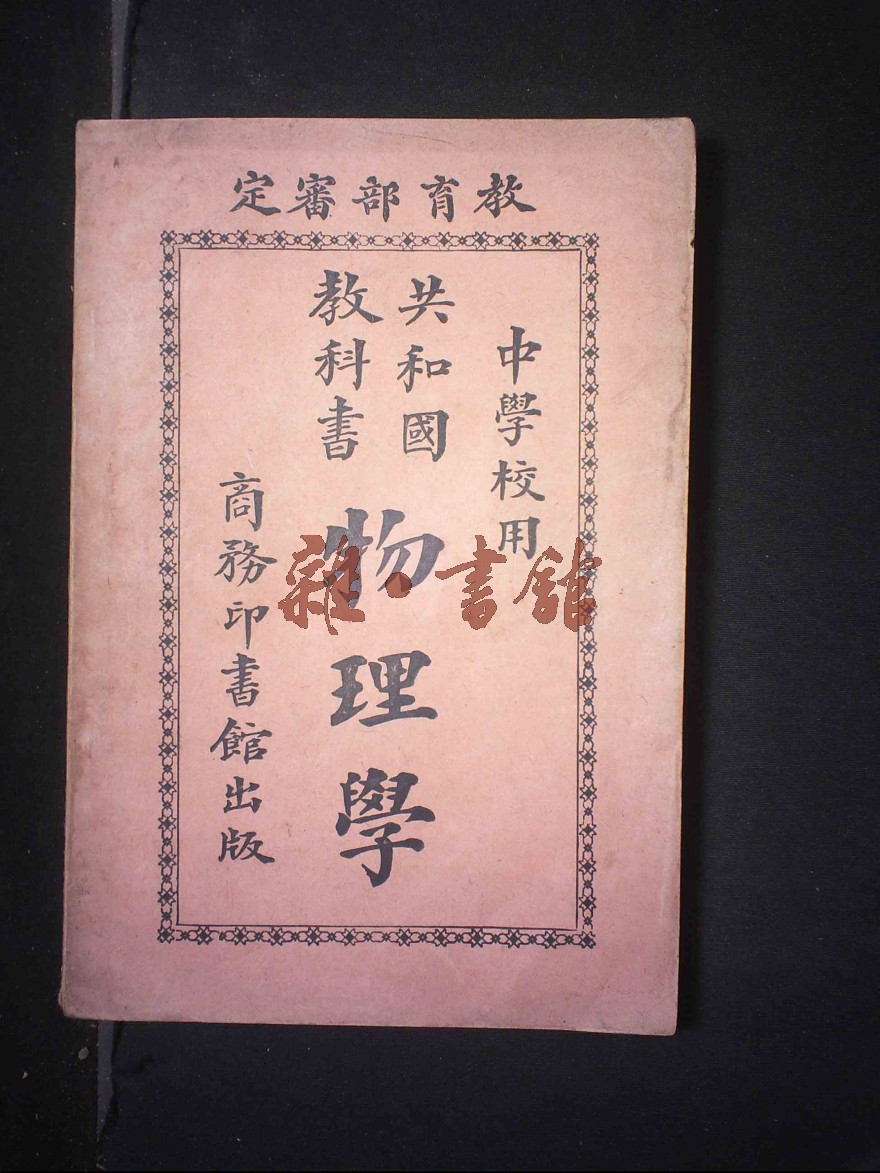 教育部審定
中學校用
共和國
教科書
物理學
商務印書館出版
雜·書館